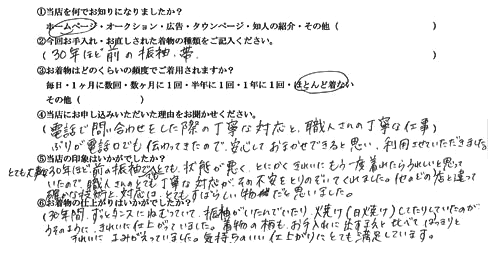 ①当店を何でお知りになりましたか?
ホームページ・オークション・広告・タウンページ・知人の紹介・その他（　　　）
②今回お手入れ・お直しされた着物の種類をご記入ください。
（30年ほど前の振袖、帯　　　）
③お着物はどのくらいの頻度でご着用されますか?
毎日・1ヶ月に数回・数ヶ月に1回・半年に1回・1年に1回・ほとんど着ない
その他（　　　）
④当店にお申し込みいただいた理由をお聞かせください。
（電話で問い合わせをした際の丁寧な対応と、職人さんの丁寧な仕事
ぶりが電話口でも伝わってきたので、安心しておまかせできると思い、利用させていただきました
⑤当店の印象はいかがでしたか?
30年ほど前の振袖でとても状態が悪く、とにかくきれいにもう一度着れたらうれしいと思って
いたので、職人さんのとても丁寧な対応が、その不安をとりのぞいてくれました。他のどの店と違って
確かな技術と対応に、とてもすばらしい物だと思いました。
⑥お着物の仕上がりはいかがでしたか?
（30年間、ずっとタンスにねむっていて、振袖がいたんでいたり、焼け（日焼け）してたりしていたのが
うそのように、きれいに仕上がっていました。着物の柄も、お手入れに出す前と比べてはっきりと
きれいに よみがえっていました。気持ちのいい仕上がりにとても満足しています。